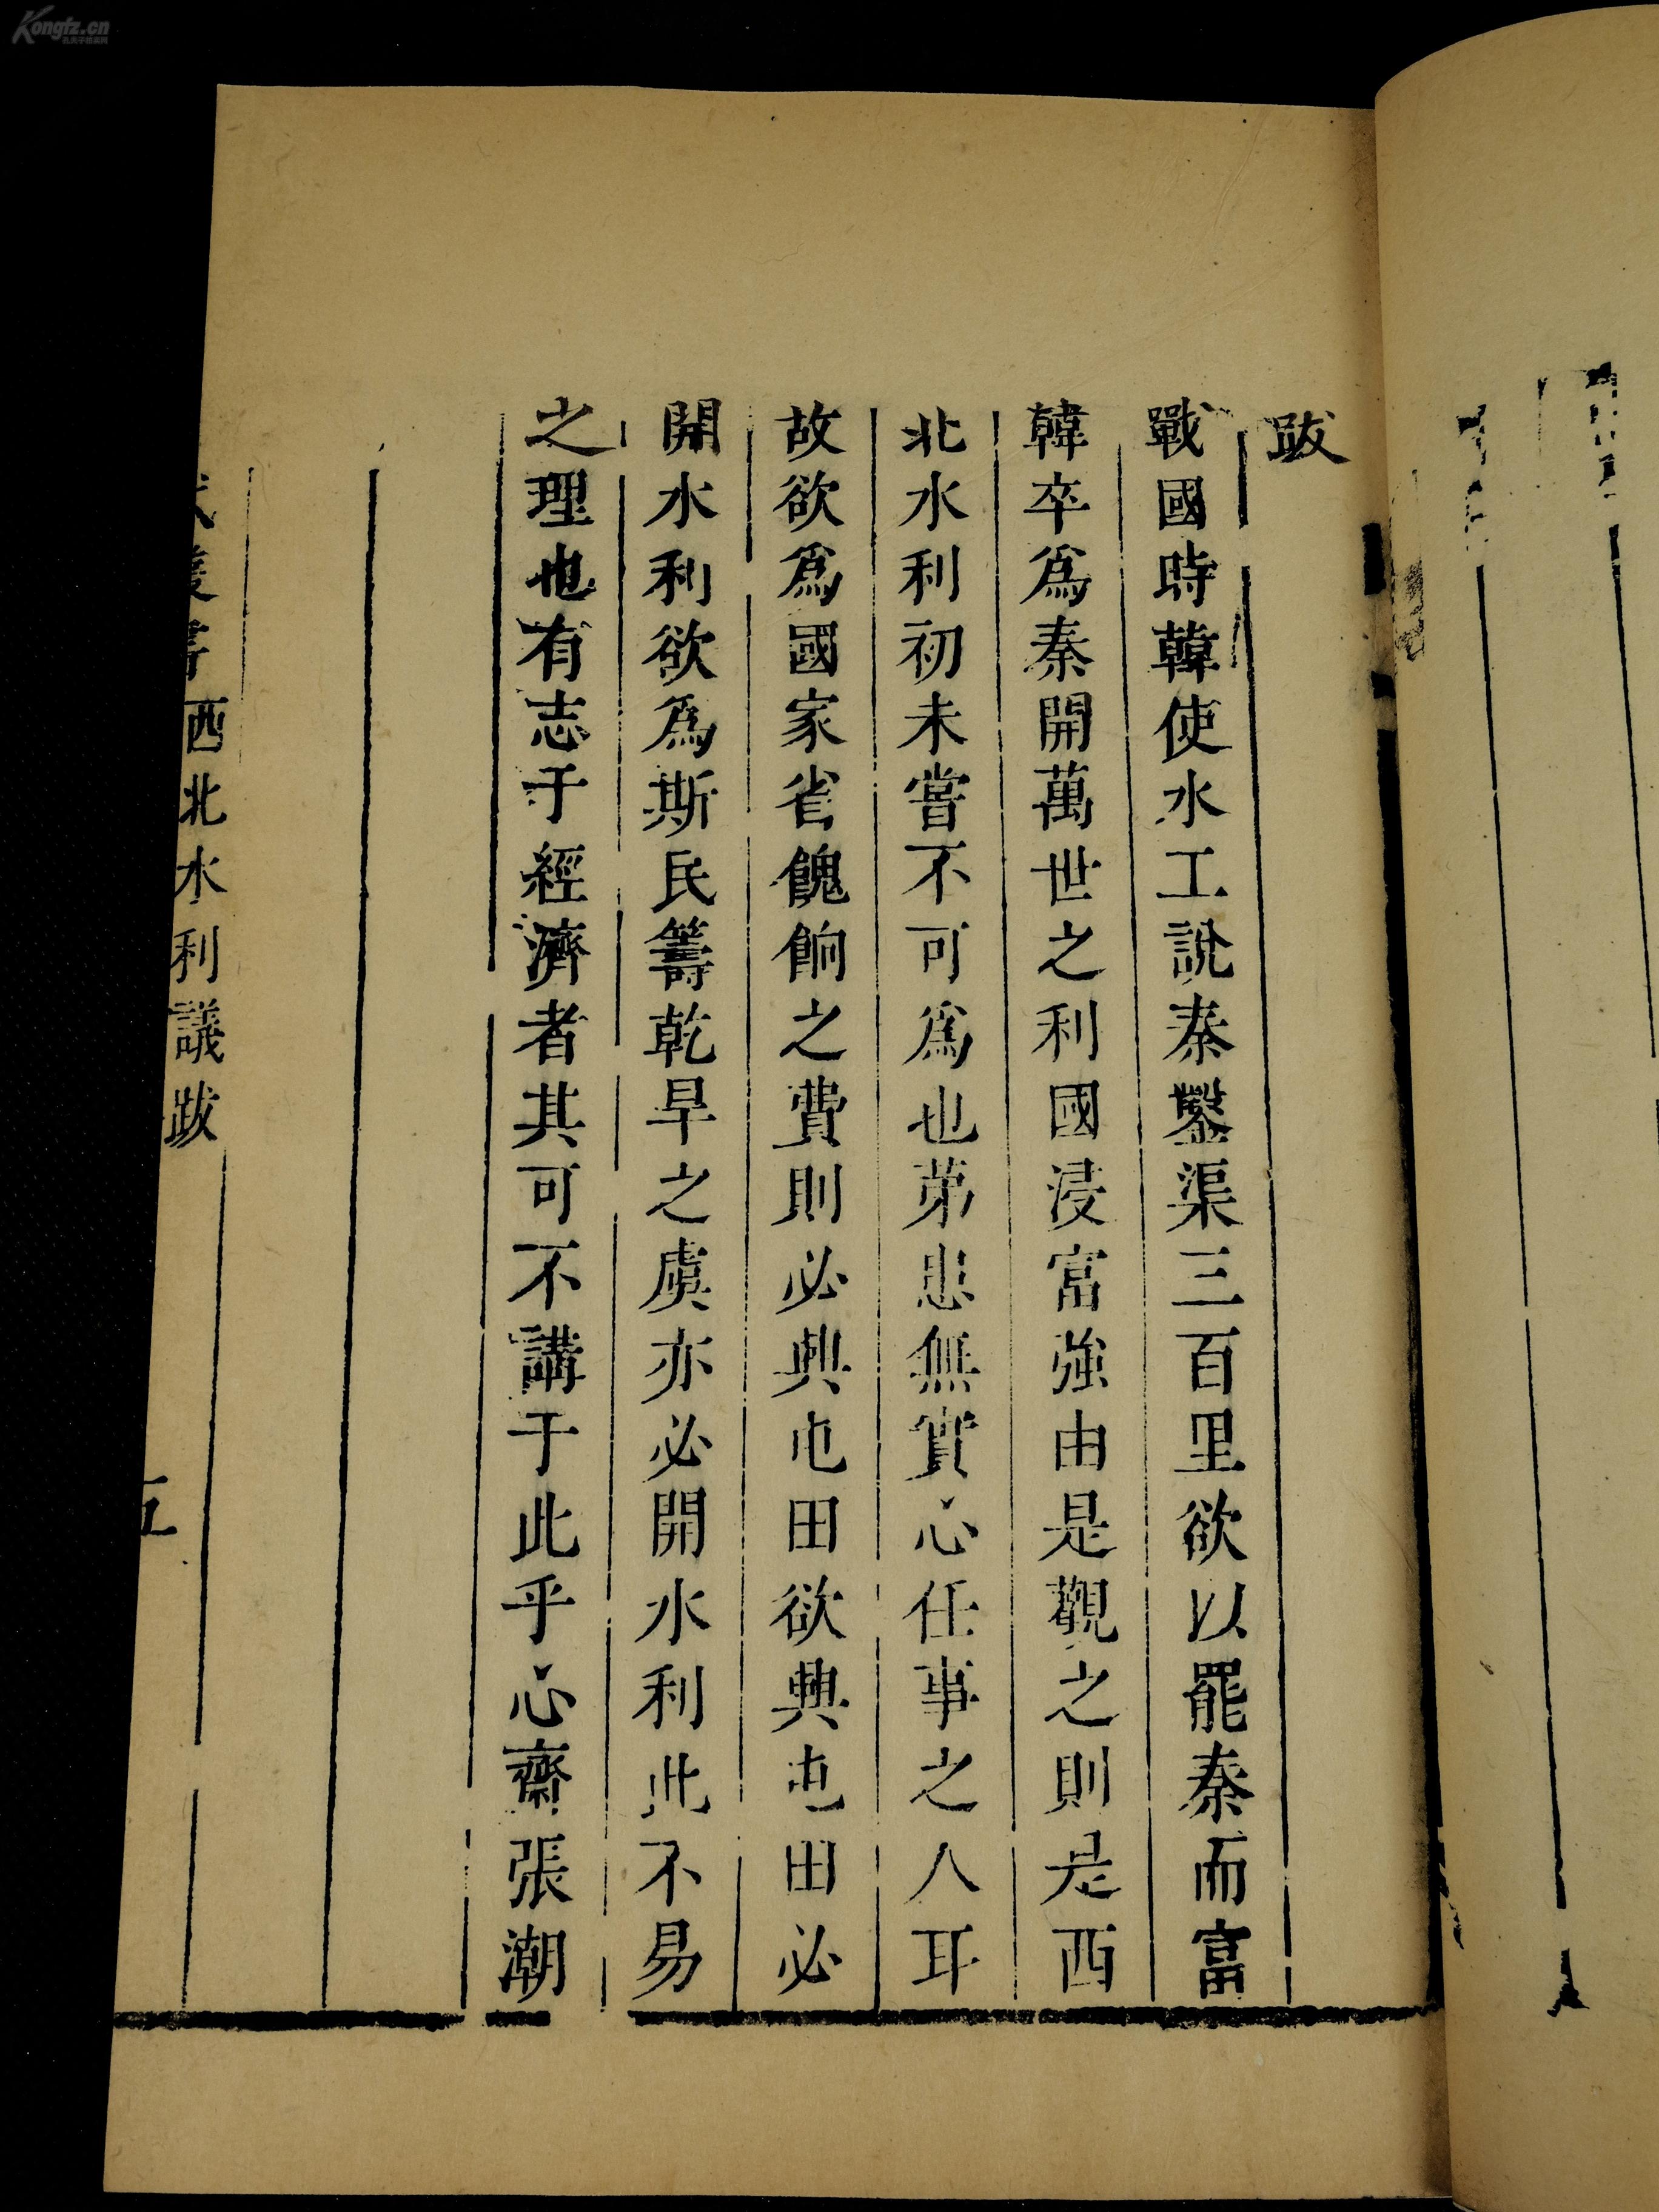 跋
戰國時韓使水工說秦鑿渠三百里欲以罷秦而富
韓卒爲秦開萬世之利國浸富強由是觀之則是西
北水利初未嘗不可爲也苐患無實心任事之人耳
故欲爲國家省餽餉之費則必興屯田欲興屯田必
開水利欲爲斯民籌乾旱之虞亦必開水利此不易
之理也有志于經濟者其可不講于此乎心齋張潮
書西北水利議跋
五
Kongfz.cn